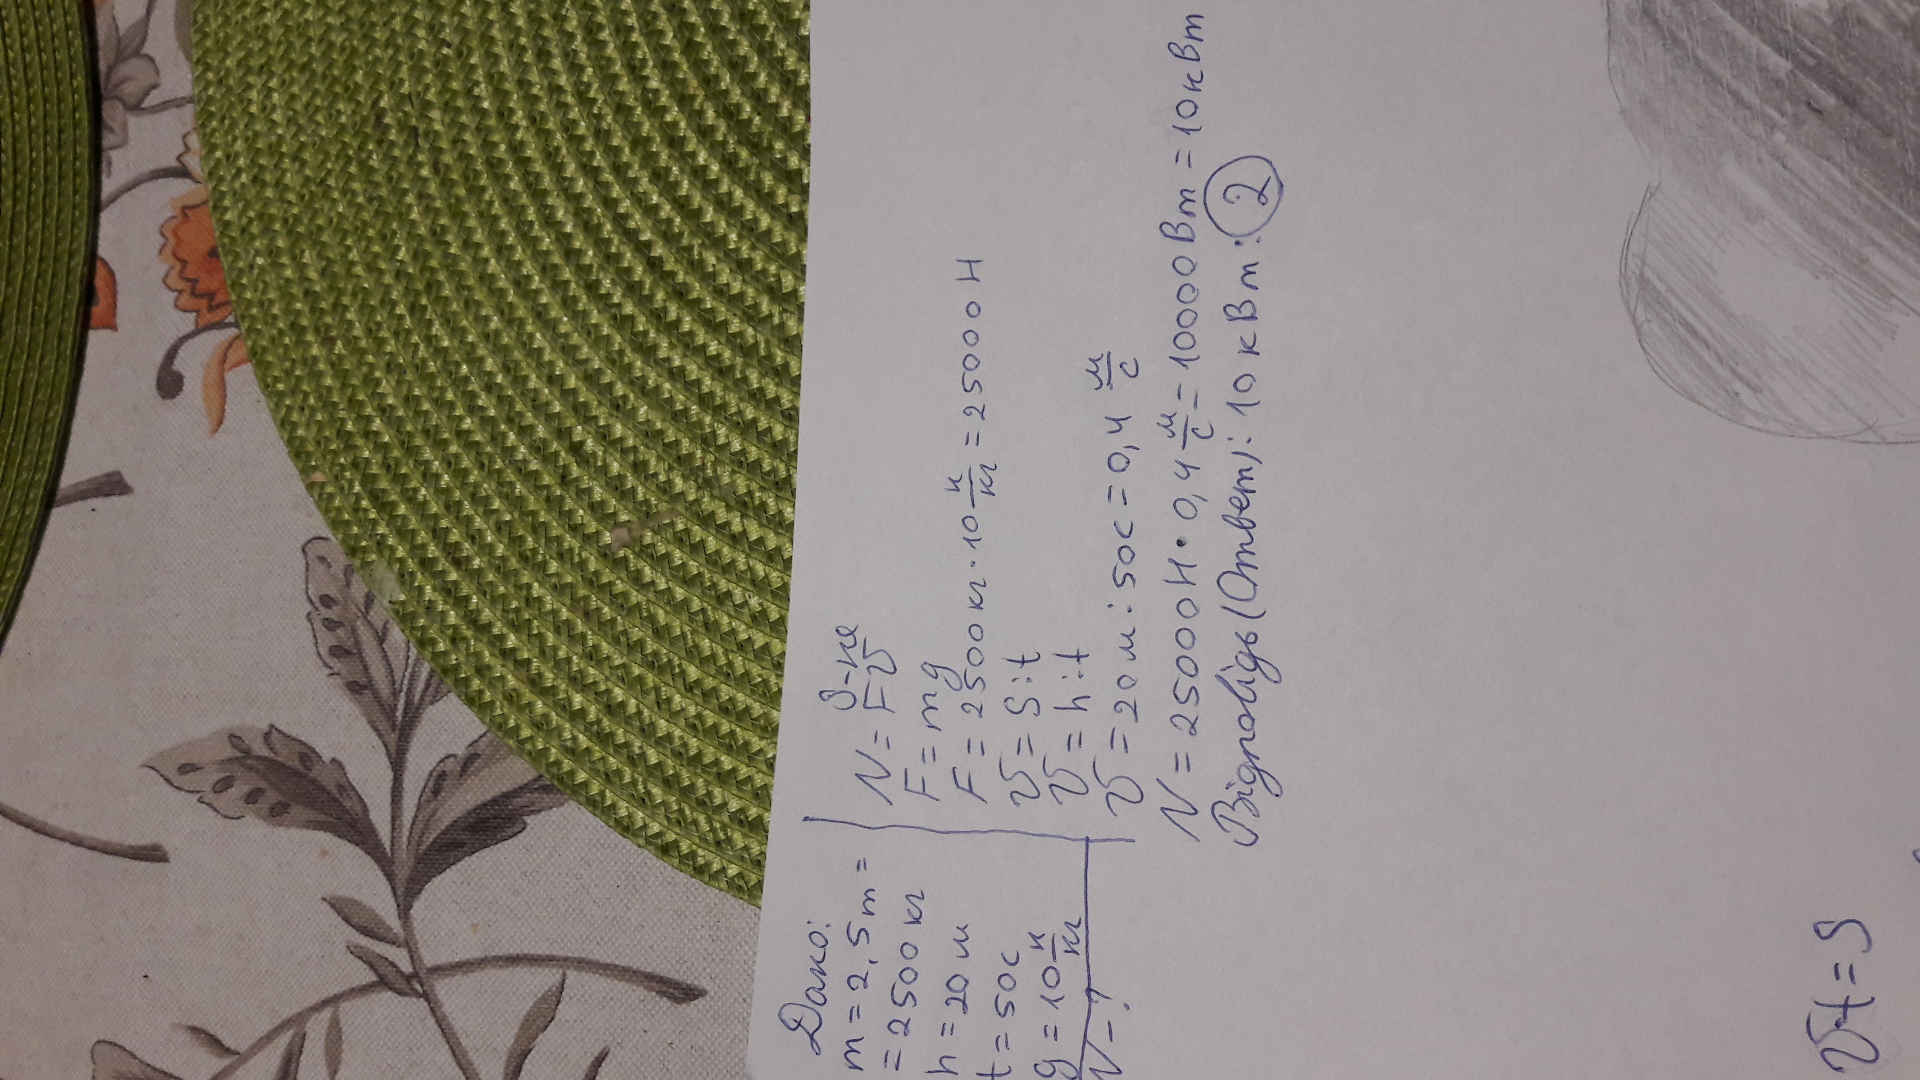 Дано:
m = 2,5 т =
= 2500 кг
h = 20 м
t = 50 с
g = 10 н/кг
N - ?
З-ня
N = Fv
F = mg
F = 2500 кг · 10 н/кг = 25000 Н
v = S : t
v = h : t
v = 20 м : 50 с = 0,4 м/с
N = 25000 Н · 0,4 м/с = 10000 Вт = 10 кВт
Відповідь (Ответ): 10 кВт : 2
vt = S